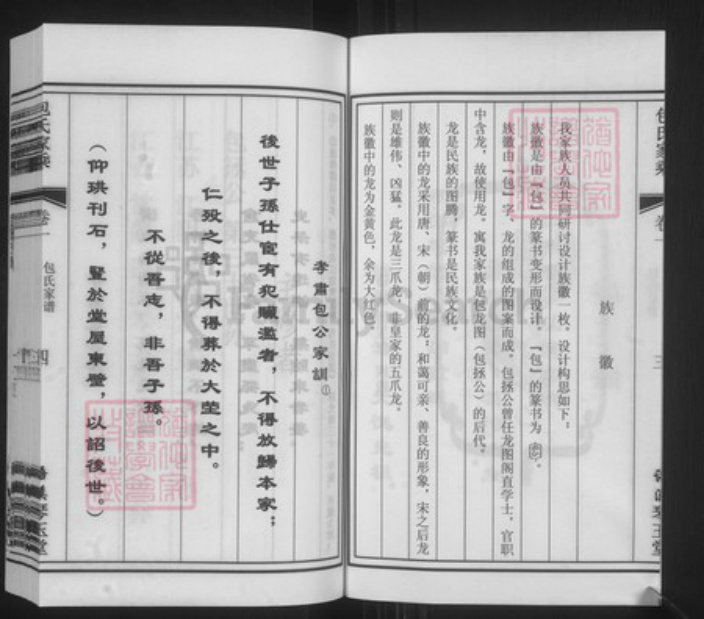 包氏家乘
卷一
三
族徽
我家族人员共同研讨设计族徽一枚。设计构思如下：
族徽是由『包』的篆书变形而设计。『包』的篆书为
族徽由『包』字、龙的组成的图案而成。包拯公曾任龙图阁直学士，官职
中含龙，故使用龙。寓我家族是包龙图（包拯公）的后代。
龙是民族的图腾，篆书是民族文化。
族徽中的龙采用唐、宋（朝）前的龙；和蔼可亲、善良的形象，宋之后龙
则是雄伟、凶猛。此龙是三爪龙，非皇家的五爪龙。
族徽中的龙为金黄色，余为大红色。
孝肃包公家訓①
後世子孫仕宦有犯贓濫者，不得放歸本家；
仁殁之後，不得葬於大茔之中。
不從吾志，非吾子孫。
（仰珙刊石，豎於堂屋東壁，以詔後世。）
包氏家乘
卷一
包氏家谱
四
FamilySearch